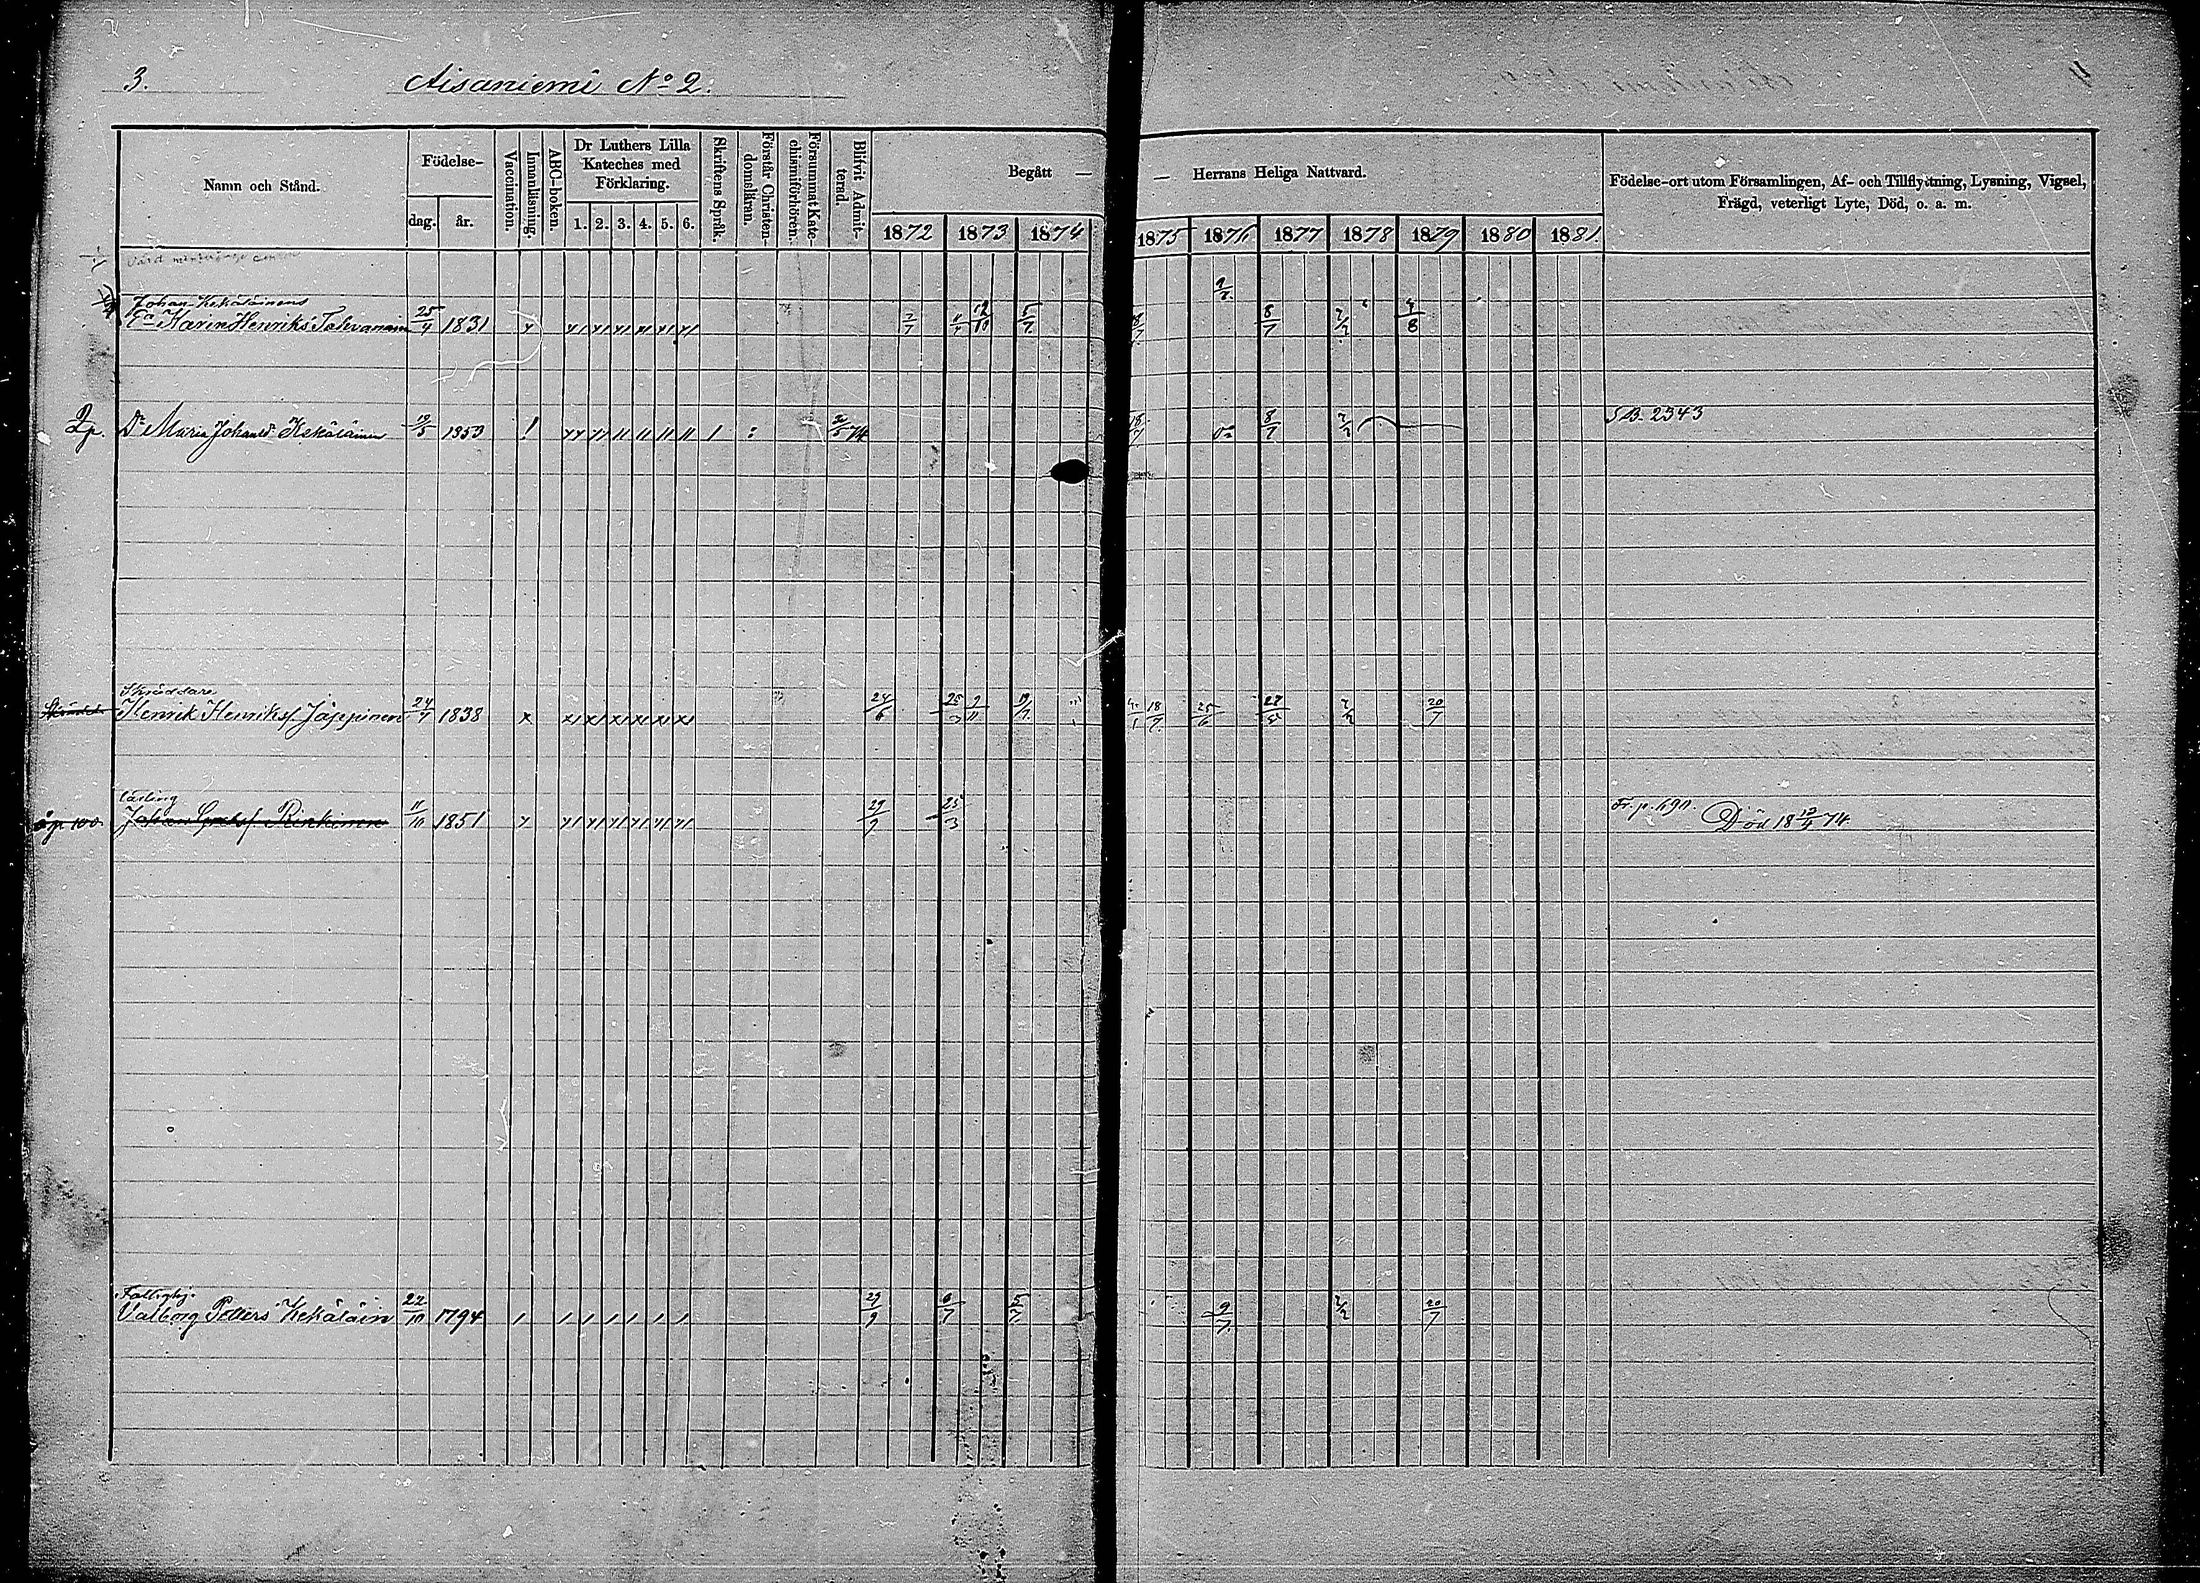 3. Aisaniemi No 2.
Namn och Stånd.
Födelse-
dag. år.
Vaccination.
Innanläsning.
ABC-boken.
Dr Luthers Lilla
Kateches med
Förklaring.
1. 2. 3. 4. 5. 6.
Skriftens Språk.
Förstår Christen-
domsläran.
Försummat Kate-
chismiförhören.
Blifvit Admit-
terad.
Begått — — Herrans Heliga Nattvard.
1872 1873 1874 1875 1876 1877 1878 1879 1880 1881
Födelse-ort utom Församlingen, Af- och Tillflyttning, Lysning, Vigsel,
Frägd, veterligt Lyte, Död, o. a. m.
9/7
Johan Kekäläinens
Ea Karin Henriks Tolvanain 25/4 1831 2/7 12/10 5/7 8/7 2/2 4/8
2 p. Dr Maria Johansdr Kekäläinen 19/5 1853 18/7 8/7 2/2 SB. 2343
Skräddare
Henrik Henrikss. Jäppinen 24/7 1838 24/6 25/3 9/11 19/7 18/7 25/6 28/5 2/2 20/7
Lärling
p 100. Johan Rinkinen 11/10 1851 29/9 25/3 Fr. p. 690. Död 18 12/4 74
Fattighj.
Valborg Petters Kekäläin 22/10 1794 29/9 6/7 5/7 9/7 2/2 20/7